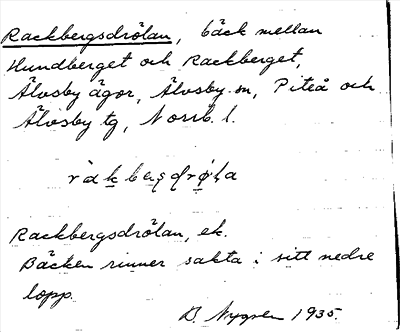 Rackbergsdrölan, bäck mellan
Hundberget och Rackberget,
Älvsby ägor, Älvsby sn, Piteå och
Älvsby tg, Norrb. l.
Rackbergsdrölan, ek.
Bäcken rinner sakta i sitt nedre
lopp.
D. Nygren 1935.